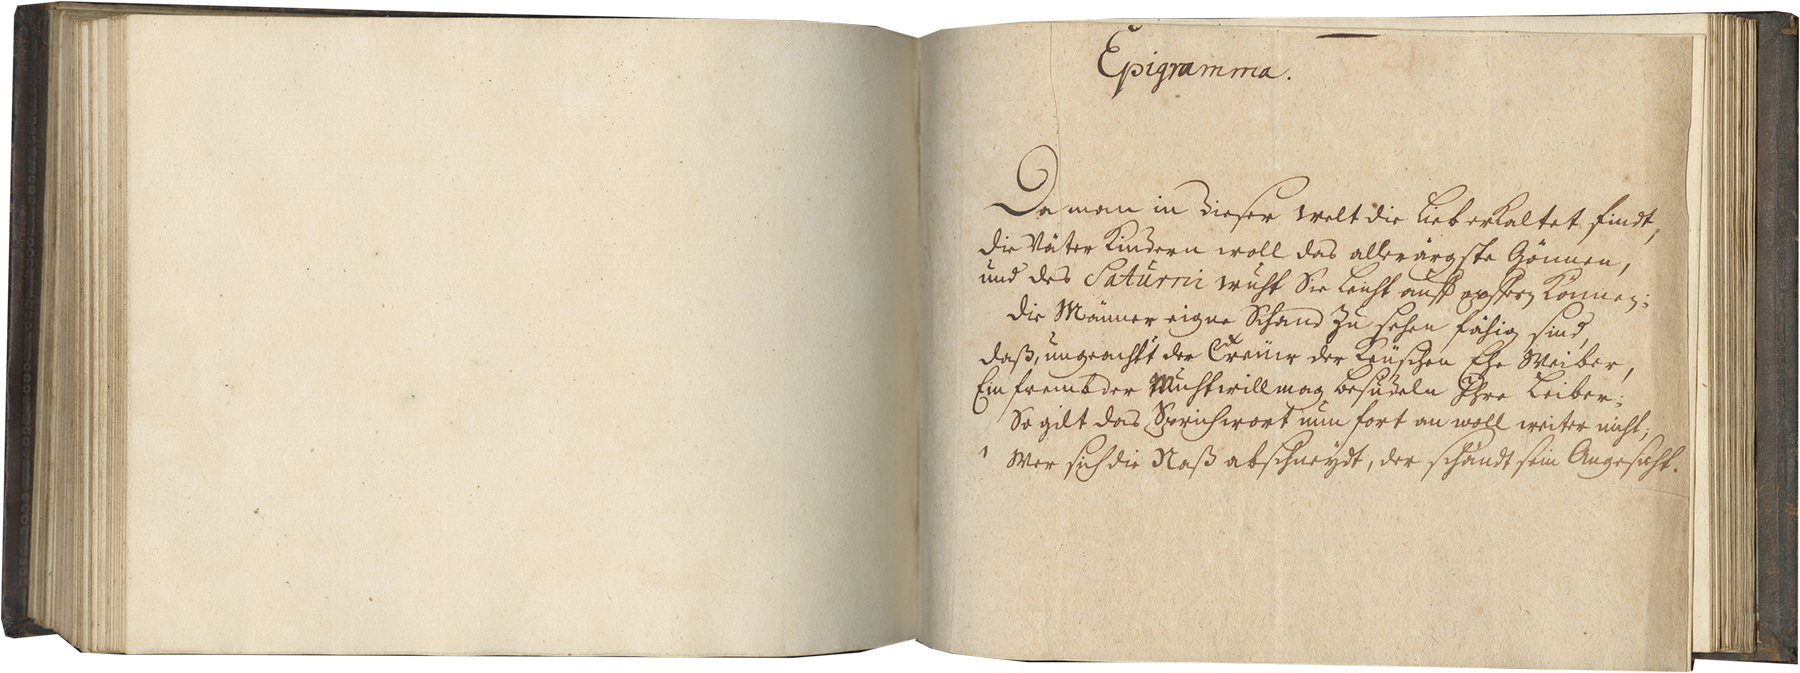 Epigramma.
Da man in dieser Welt die Lieb erkaltet findt,
die Väter Kindern woll das allerärgste Gönnen,
und des Saturni wuht Sie leicht auff opffern Können;
die Männer eigne Schand zu sehen fähig sind,
daß, ungeacht't der Treüe der Keüschen Ehe Weiber,
Ein frembder Muhtwill mag besudeln Ihre Leiber;
So gilt das Sprichwort nun fort an woll weiter nicht;
Wer sich die Naß abschneydt, der schändt sein Angesicht.